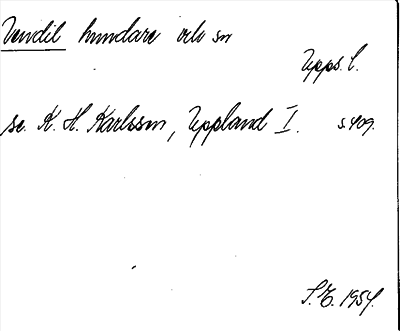 Vendil hundare och sn
Upps. l.
se K. H. Karlsson, Uppland I. s. 409.
S.E. 1954.